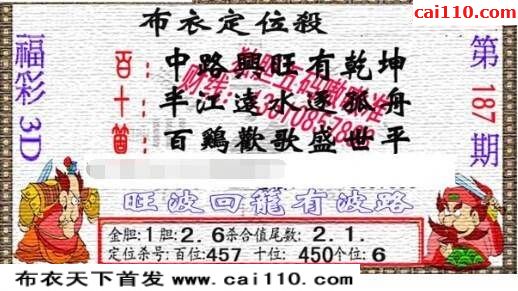 cai110.com
布衣定位殺
福彩3D
第187期
百: 中路興旺有乾坤
十: 半江遠水逐孤舟
個: 百鷄歡歌盛世平
旺波回龍有波路
金胆:1胆:2.6杀合值尾数:2.1.
定位杀号:百位:457 十位:450个位:6
布衣天下首发 www.cai110.com